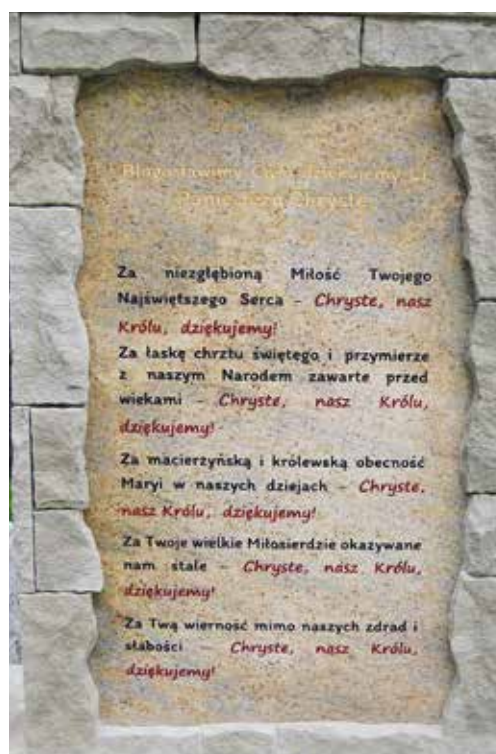 Błogosławimy Cię i dziękujemy Ci
Panie Jezu Chryste
Za niezgłębioną Miłość Twojego
Najświętszego Serca – Chryste, nasz
Królu, dziękujemy!
Za łaskę chrztu świętego i przymierze
z naszym Narodem zawarte przed
wiekami – Chryste, nasz Królu,
dziękujemy!
Za macierzyńską i królewską obecność
Maryi w naszych dziejach – Chryste,
nasz Królu, dziękujemy!
Za Twoje wielkie Miłosierdzie okazywane
nam stale – Chryste, nasz Królu,
dziękujemy!
Za Twą wierność mimo naszych zdrad i
słabości – Chryste, nasz Królu,
dziękujemy!